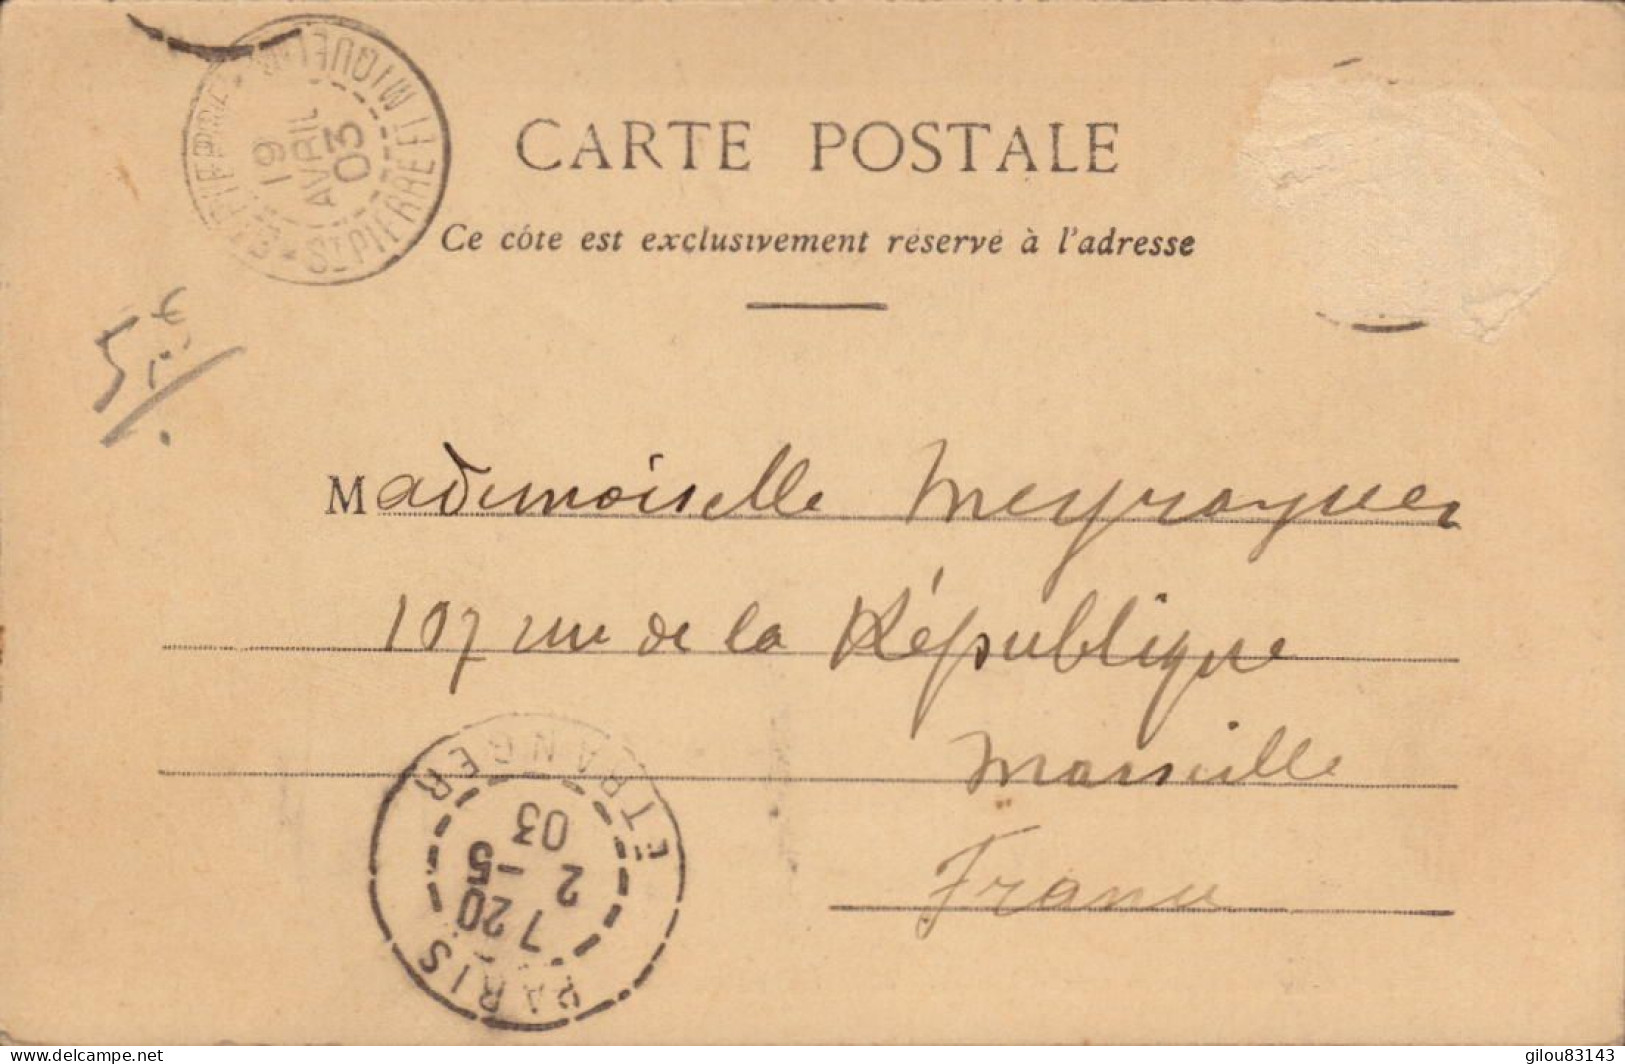 ST PIERRE ET MIQUELON
19
AVRIL
03
CARTE POSTALE
Ce côté est exclusivement réservé à l'adresse
Mademoiselle Meyrargues
107 rue de la République
Marseille
France
PARIS ÉTRANGER
7 20
2 - 5
03
www.delcampe.net
gilou83143